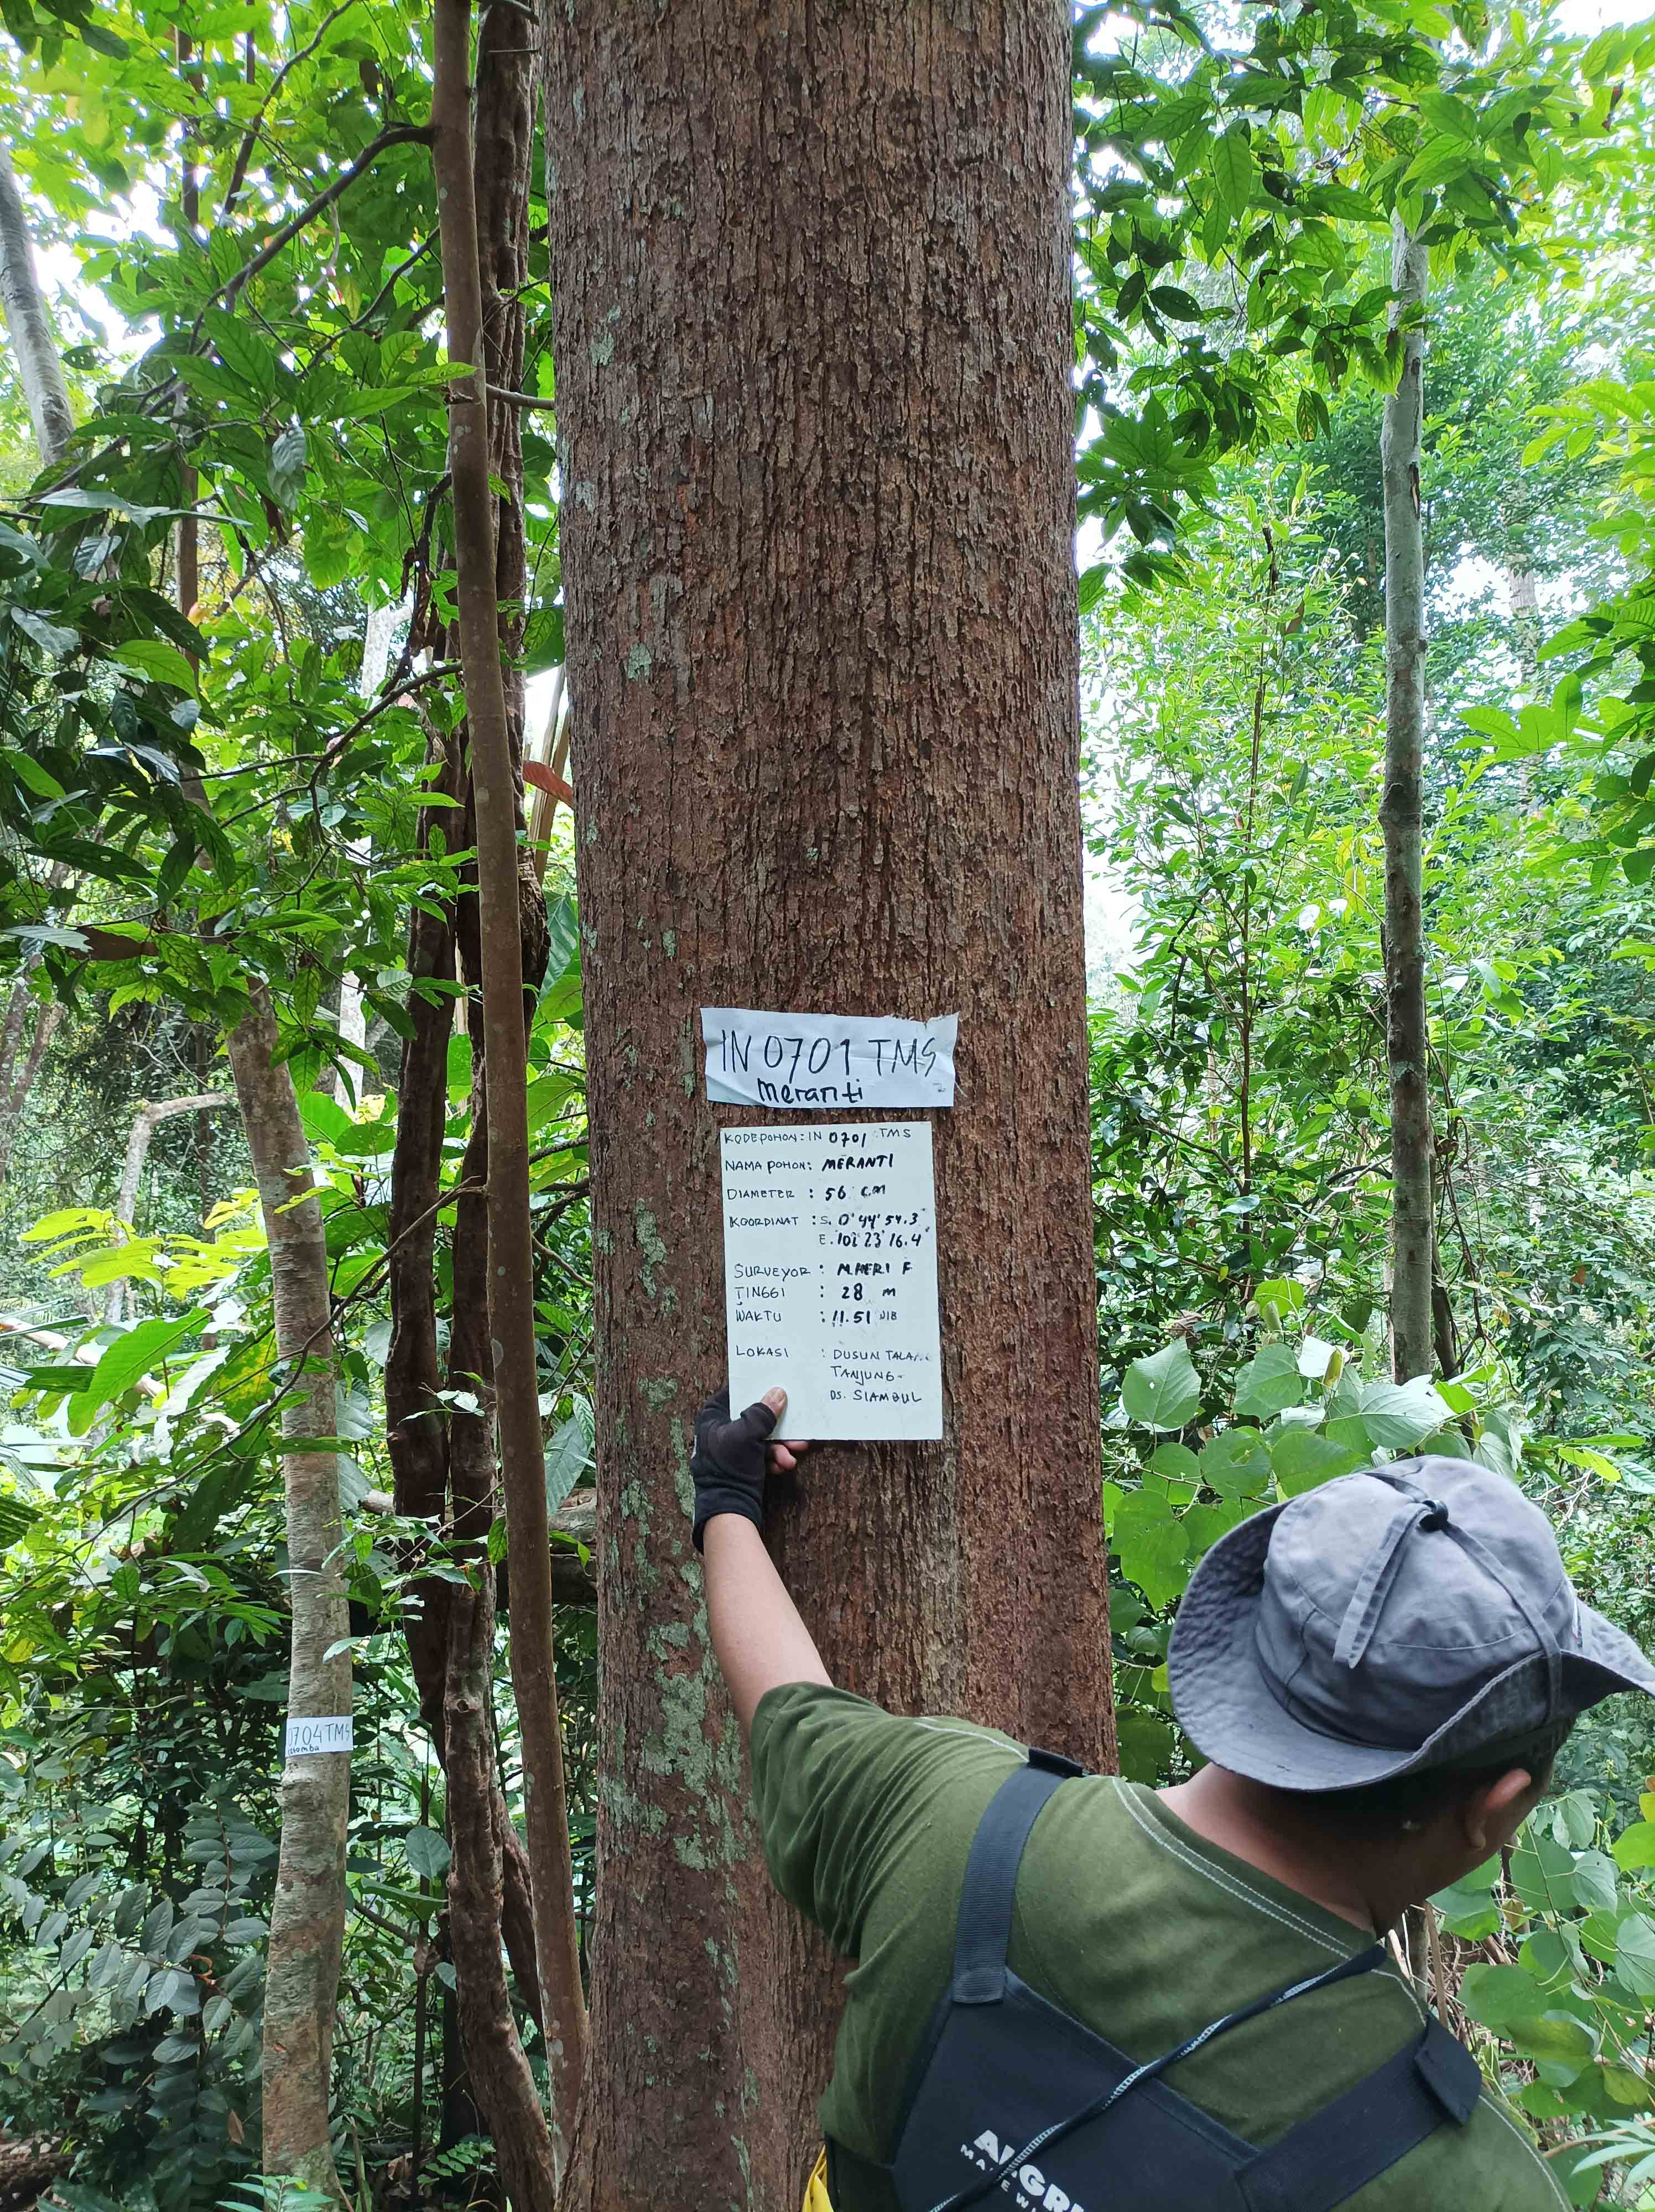 IN 0701 TMS
Meranti
KODE POHON: IN 0701 TMS
NAMA POHON: MERANTI
DIAMETER : 56 cm
KOORDINAT : S. 0° 44' 54.3"
E. 102° 23' 16.4"
SURVEYOR : M.HERI F
TINGGI : 28 m
WAKTU : 11.51 WIB
LOKASI : DUSUN TALANG
TANJUNG-
DS. SIAMBUL
0704 TMS